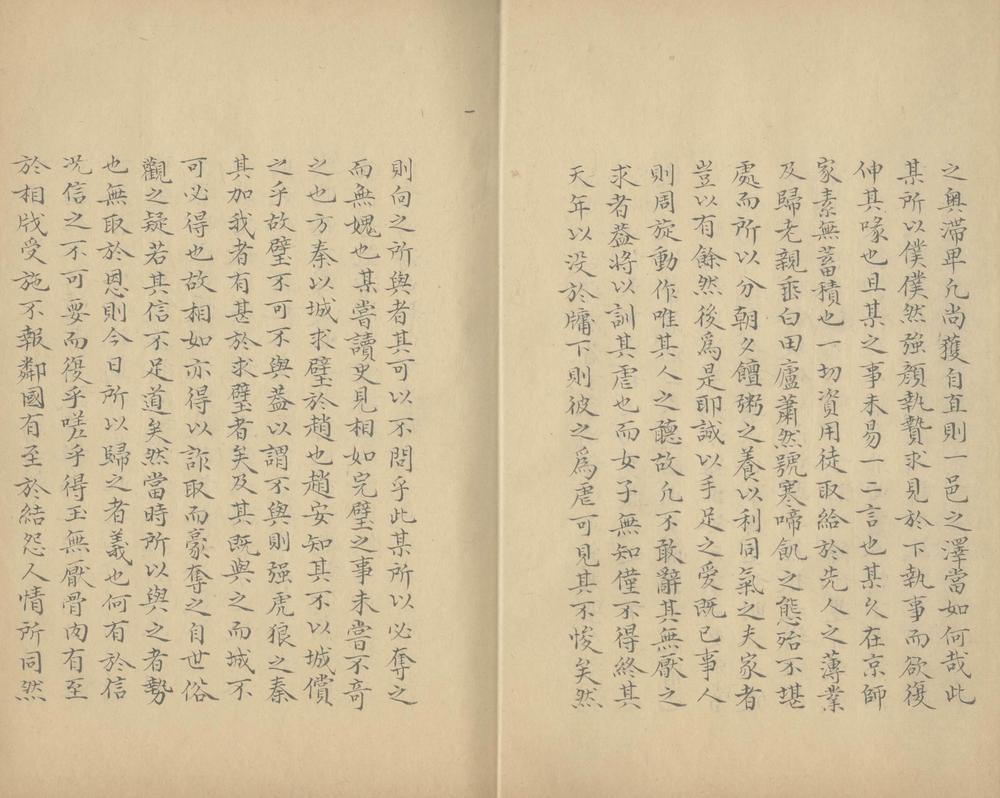 之奧滯畢凡尚獲自直則一邑之澤當如何哉此
某所以僕僕然强顏執贄求見於下執事而欲復
伸其喙也且某之事未易一二言也某久在京師
家素無蓄積也一切資用徒取給於先人之薄業
及歸老親垂白田廬蕭然號寒啼飢之態殆不堪
處而所以分朝夕饘粥之養以利同氣之夫家者
豈以有餘然後爲是耶誠以手足之愛既已事人
則周旋動作唯其人之聽故凡不敢辭其無厭之
求者葢將以訓其虐也而女子無知僅不得終其
天年以没於牖下則彼之爲虐可見其不悛矣然
則向之所與者其可以不問乎此某所以必奪之
而無媿也某嘗讀史見相如完璧之事未嘗不奇
之也方秦以城求璧於趙也趙安知其不以城償
之乎故璧不可不與葢以謂不與則强虎狼之秦
其加我者有甚於求璧者矣及其既與之而城不
可必得也故相如亦得以詐取而豪奪之自世俗
觀之疑若其信不足道矣然當時所以與之者勢
也無取於恩則今日所以歸之者義也何有於信
况信之不可要而復乎嗟乎得玉無厭骨肉有至
於相戕受施不報鄰國有至於結怨人情所同然